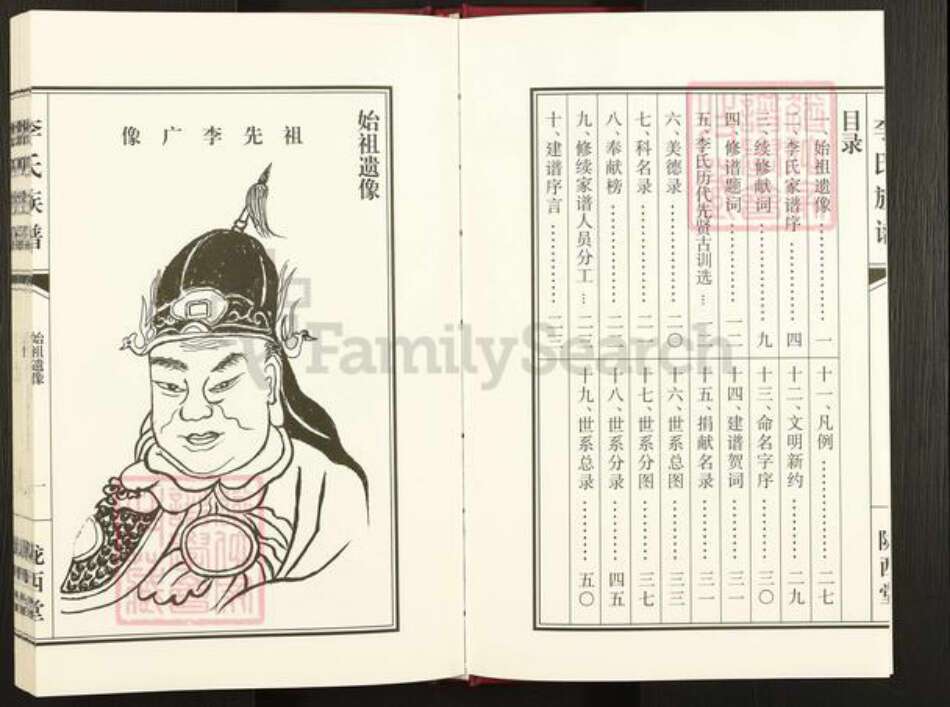 李氏族谱
目录
一、始祖遗像…………一
二、李氏家谱序…………四
三、续修献词…………九
四、修谱题词…………一二
五、李氏历代先贤古训选…
六、美德录…………二〇
七、科名录…………二一
八、奉献榜…………二二
九、修续家谱人员分工…二三
十、建谱序言…………
十一、凡例…………二七
十二、文明新约…………二九
十三、命名字序…………三〇
十四、建谱贺词…………三一
十五、捐献名录…………三一
十六、世系总图…………三三
十七、世系分图…………三七
十八、世系分录…………四五
十九、世系总录…………五〇
陇西堂
始祖遗像
祖先李广像
李氏族谱
始祖遗像
一
陇西堂
FamilySearch